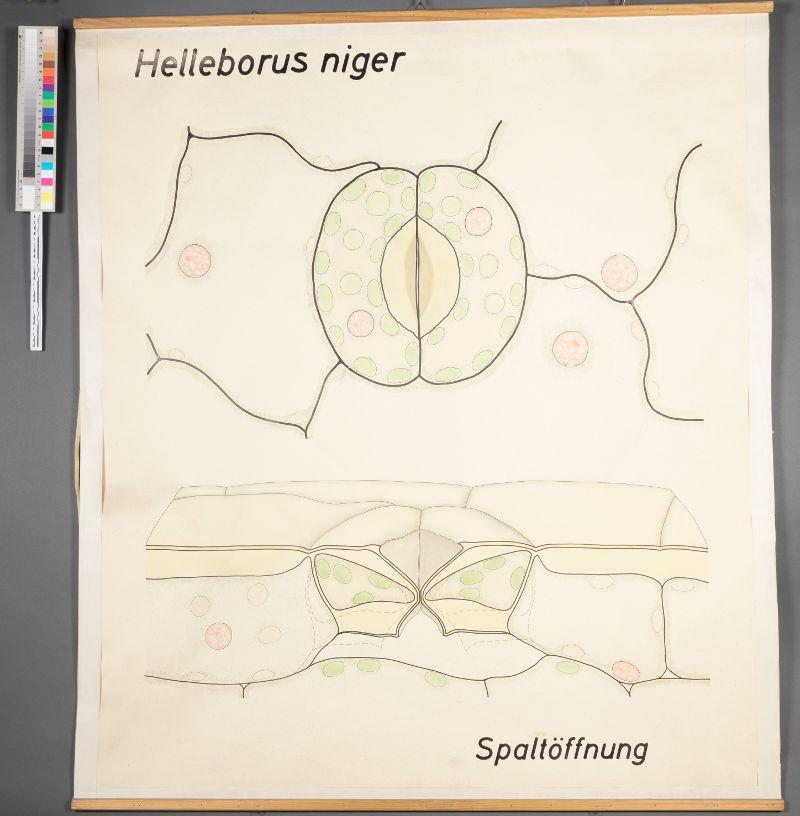 Helleborus niger
Spaltöffnung